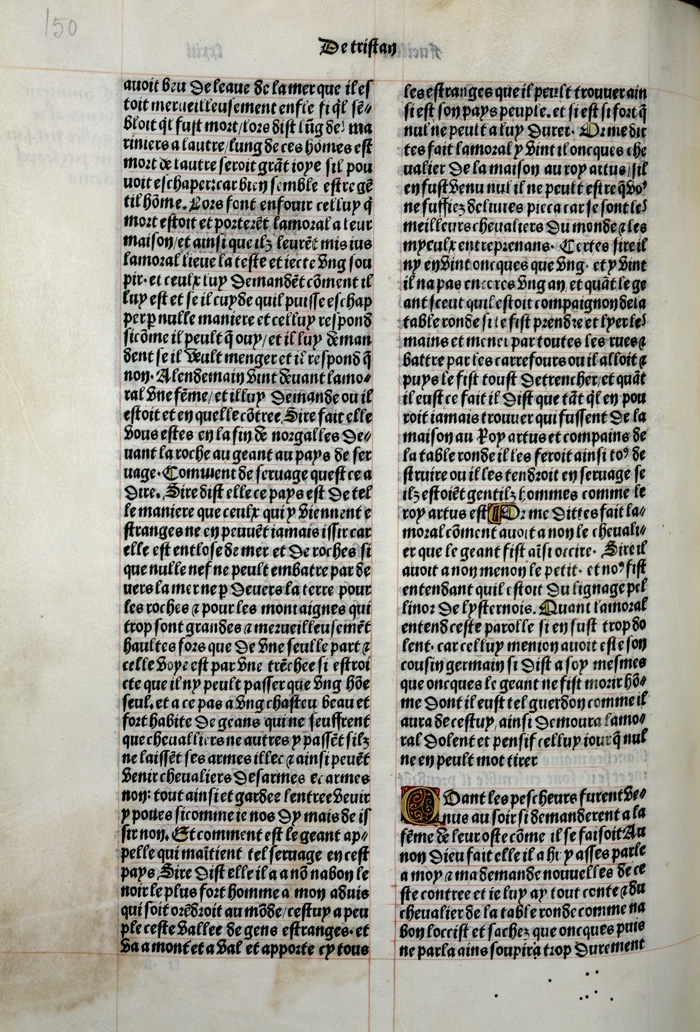 150
De tristan
auoit beu de leaue de la mer que il es
toit merueilleusement enfle si ql̃ sẽ⸗
bloit ql̃ fust mort/lors dist lũg des ma
riniers a lautre/lung de ces hõmes est
mort de lautre seroit grãt ioye sil pou
uoit eschaper:car bien semble estre gẽ
til hõme. Lors font enfouir celluy q̃
mort estoit et porterẽt lamoral a leur
maison/et ainsi que ilz leurẽt mis ius
lamoral lieue la teste et iecte vng sou
pir. et ceulx luy demandẽt cõment il
luy est et se il cuyde quil puisse eschap
per p nulle maniere et celluy respond
sicõme il peult q̃ ouy/et il luy deman
dent se il veult menger et il respond q̃
non. A lendemain vint deuant lamo⸗
ral vne fẽme/et illuy demande ou il
estoit et en quelle cõtree. Sire fait elle
vous estes en la fin de norgalles de⸗
uant la roche au geant au pays de ser
uage. Comment de seruage quest ce a
dire. Sire dist elle ce pays est de tel
le maniere que ceulx qui y viennent e
stranges ne en peuuẽt iamais issir car
elle est enlose de mer et de roches si
que nulle nef ne peult embatre par de
uers la mer ne p deuers la terre pour
les roches & pour les montaignes qui
trop sont grandes & merueilleusemẽt
haultes fors que de vne seulle part &
celle voye est par vne trẽchee si estroi
cte que il ny peult passer que vng hõe
seul. et a ce pas a vng chasteu beau et
fort habite de geans qui ne seuffrent
que cheualliers ne autres y passẽt silz
ne laissẽt ses armes illec & ainsi peuẽt
venir cheualiers desarmes et armes
non: tout ainsi et gardee lentree venir
y poues sicomme ie nos dy mais de is
sir non. Et comment est le geant ap⸗
pelle qui maĩtient tel seruage en cest
pays. Sire dist elle il a a nõ nabon le
noir le plus fort homme a mon aduis
qui soit orẽdroit au mõde/cestuy a peu
ple ceste vallee de gens estranges. et
va a mont et a val et apporte cy tous
les estranges que il peult trouuer ain
si est son pays peuple. et si est si fort q̃
nul ne peult a luy durer. Or me dic
tes fait lamoral y vint il oncques che
ualier de la maison au roy artus/sil
en fust venu nul il ne peult estre q̃ voꝰ
ne fussiez deliures pieca car se sont les
meilleurs cheualiers du monde & les
myeulx entreprenans. Certes sire il
ny en vint oncques que vng. et y vint
il na pas encores vng an et quãt le ge
ant sceut quil estoit compaignon de la
table ronde si le fist prendre et lyer les
mains et mener par toutes les rues &
battre par les carrefours ou il alloit &
puys le fist toust detrencher/et quãt
il eust ce fait il dist que tãt ql̃ en pou
roit iamais trouuer qui fussent de la
maison au Roy artus et compains de
la table ronde il les feroit ainsi toꝰ de
struire ou il les tendroit en seruage se
ilz estoiẽt gentilz hommes comme le
roy artus est. Or me dittes fait la⸗
moral cõment auoit a non le cheuali⸗
er que le geant fist aĩsi occire. Sire il
auoit a non menon le petit. et noꝰ fist
entendant quil estoit du lignage pel
linor de lysternois. Quant lamoral
entend ceste parolle si en fust trop do
lent. car celluy menion auoit este son
cousin germain si dist a soy mesmes
que oncques le geant ne fist morir hõ⸗
me dont il eust tel guerdon comme il
aura de cestuy, ainsi demoura lamo⸗
ral dolent et pensif celluy iour q̃ nul
ne en peult mot tirer
Quant les pescheurs furent ve⸗
nus au soir si demanderent a la
fẽme de leur oste cõme il se faisoit Au
non dieu fait elle il a huy asses parle
a moy & ma demande nouuelles de ce
ste contree et ie luy ay tout conte & du
cheualier de la table ronde comme na
bon loccist et sachez que oncques puis
ne parla ains soupira trop durement